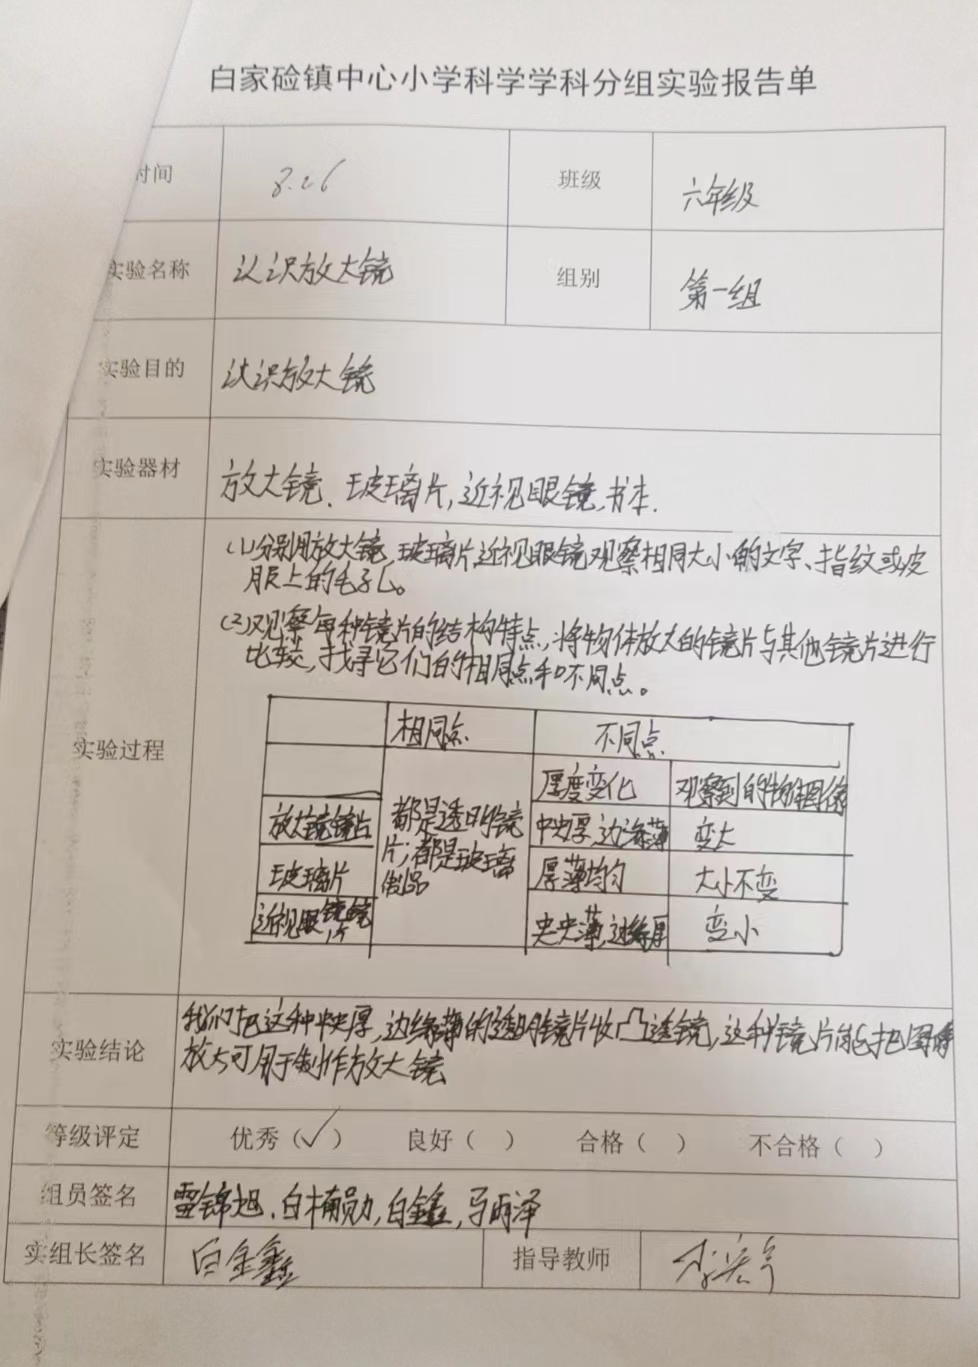 白家硷镇中心小学科学学科分组实验报告单
时间 8.26 班级 六年级
实验名称 认识放大镜 组别 第一组
实验目的 认识放大镜
实验器材 放大镜、玻璃片,近视眼镜,书本.
实验过程
(1)分别用放大镜,玻璃片,近视眼镜观察相同大小的文字、指纹或皮
肤上的毛孔。
(2)观察每种镜片的结构特点,将物体放大的镜片与其他镜片进行
比较,找寻它们的相同点和不同点。
相同点 不同点
厚度变化 观察到的物体图像
放大镜镜片 都是透明的镜片;都是玻璃制品 中央厚,边缘薄 变大
玻璃片 厚薄均匀 大小不变
近视眼镜镜片 央央薄,边缘厚 变小
实验结论 我们把这种中央厚,边缘薄的透明镜片收凸透镜,这种镜片能把图像
放大可用于制作放大镜
等级评定 优秀(✓) 良好( ) 合格( ) 不合格( )
组员签名 雷锦旭、白楠勋,白鑫,马雨泽
实组长签名 白金鑫 指导教师